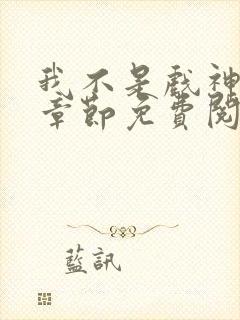 我不是戲神
章節免費閱
藍訊